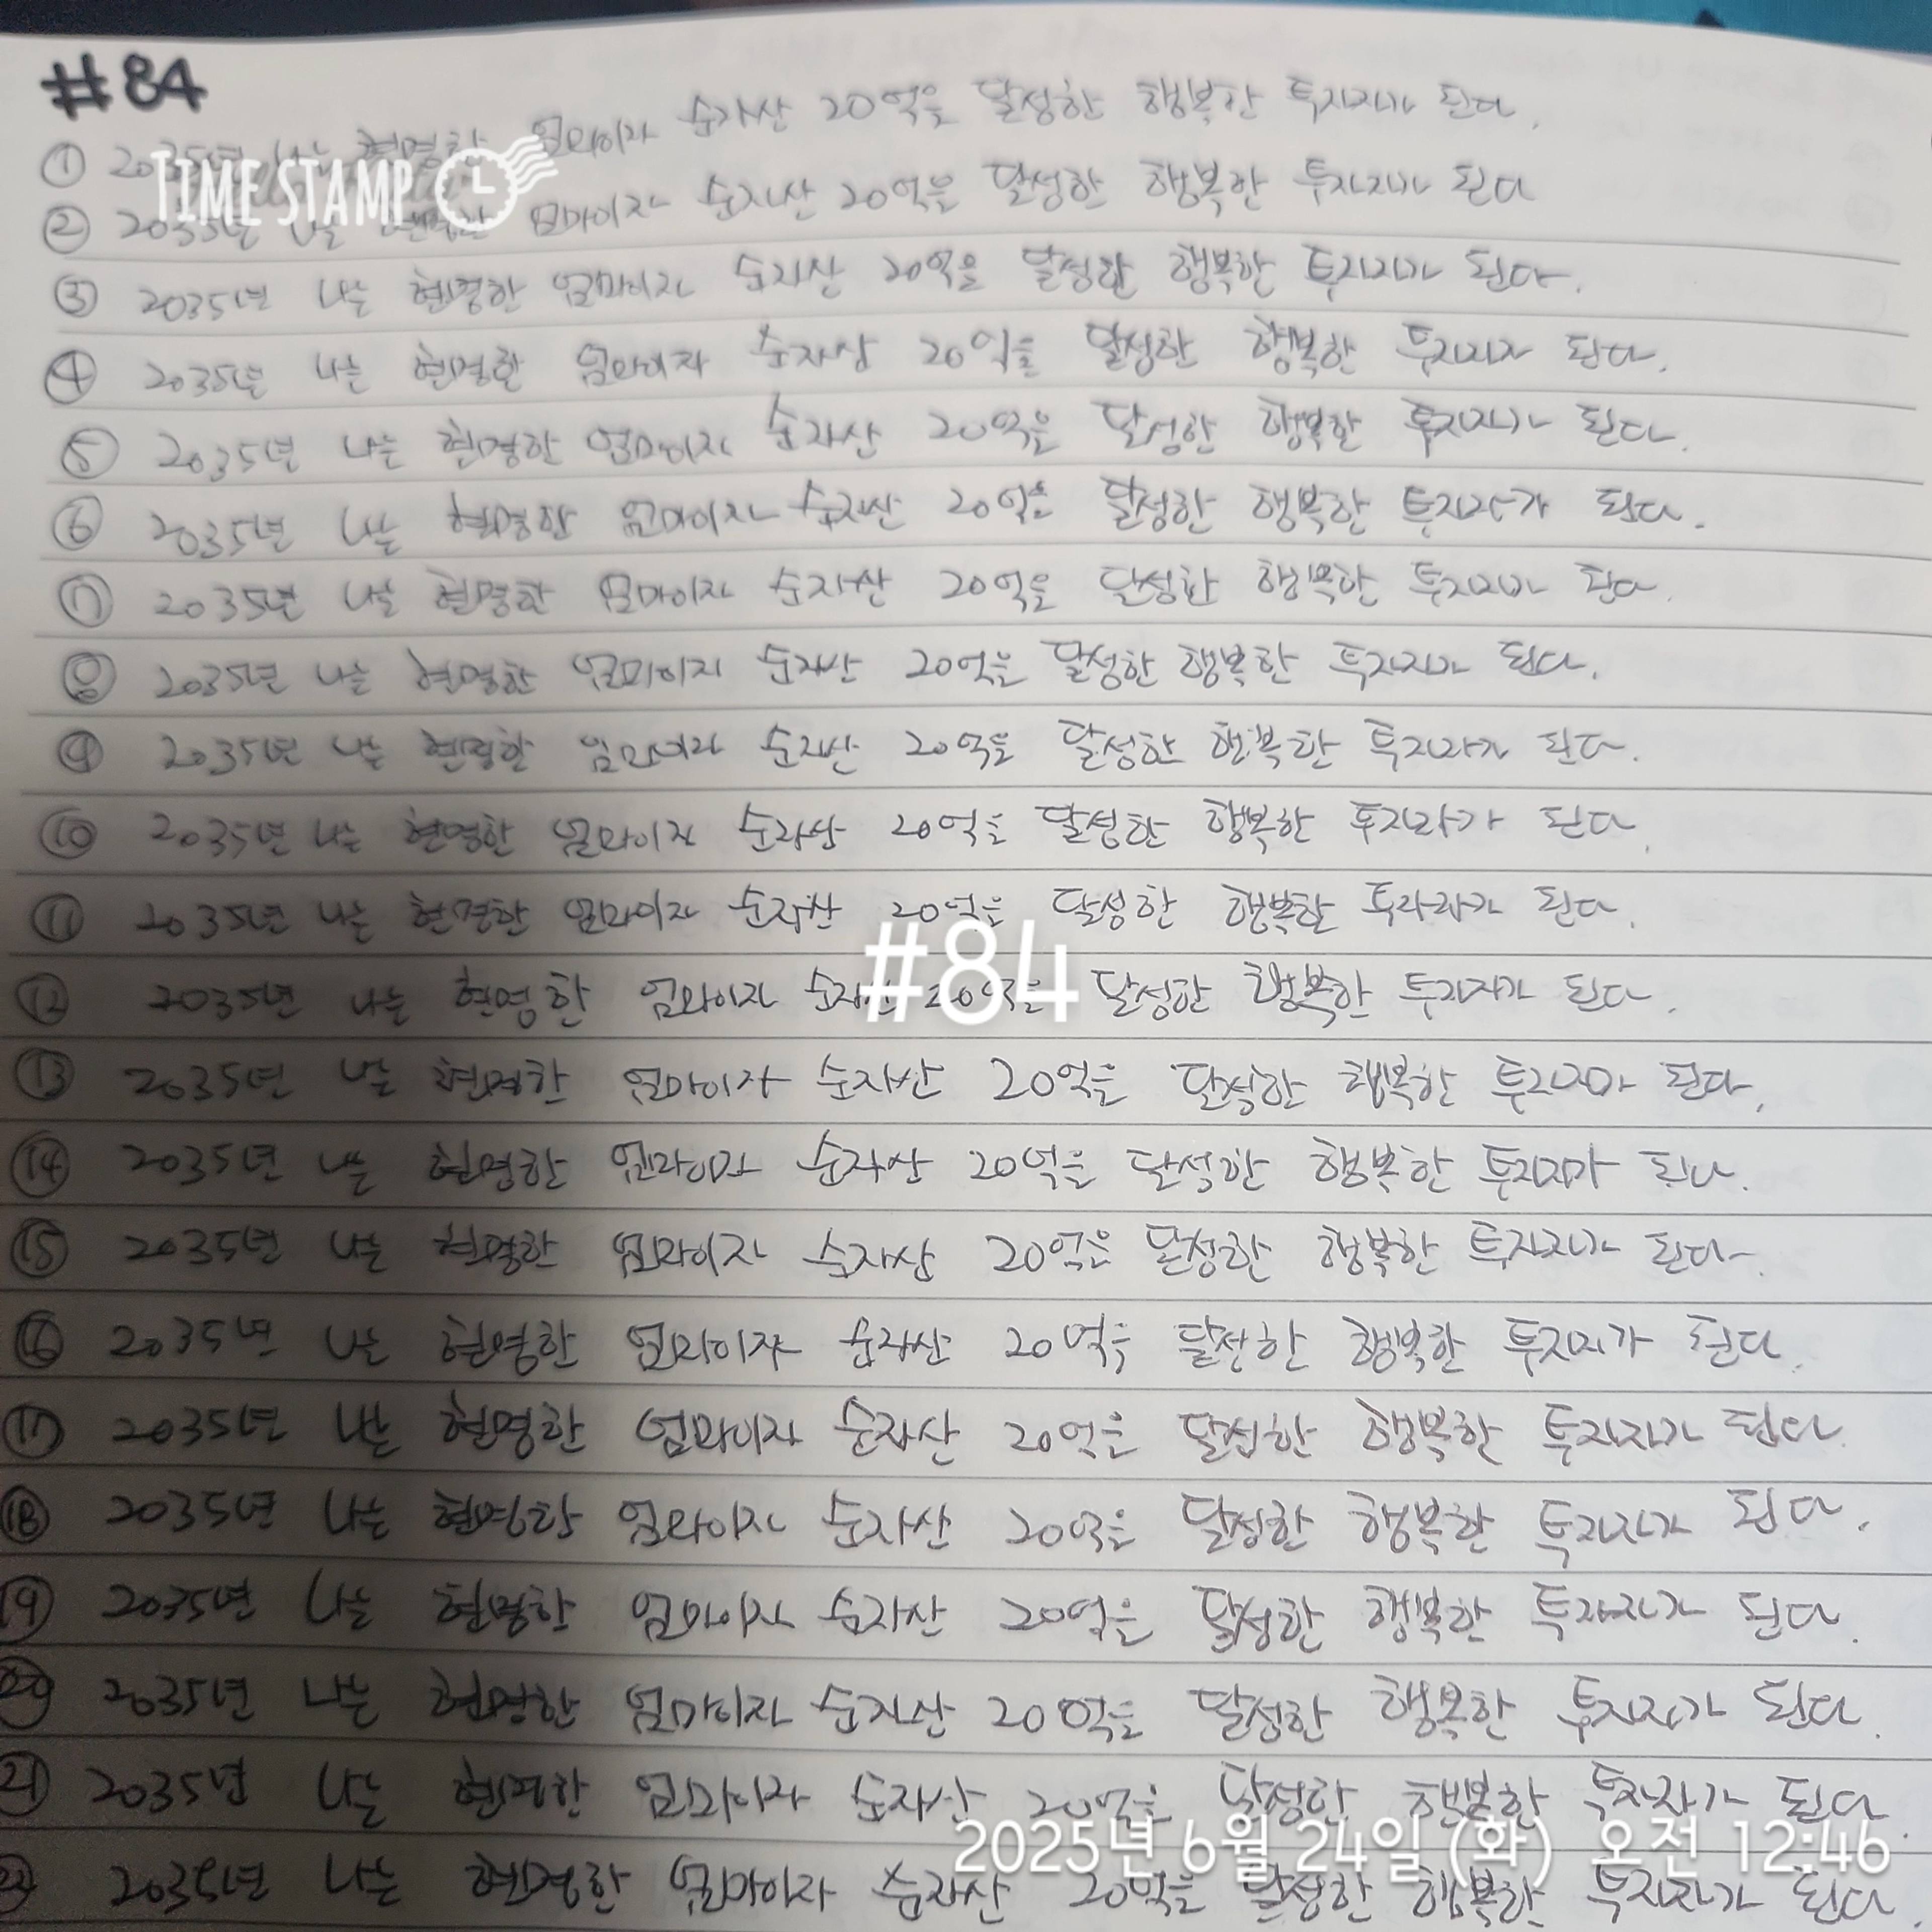 #84
① 2035년 나는 현명한 엄마이자 순자산 20억을 달성한 행복한 투자자가 된다.
TIME STAMP
② 2035년 나는 현명한 엄마이자 순자산 20억을 달성한 행복한 투자자가 된다
③ 2035년 나는 현명한 엄마이자 순자산 20억을 달성한 행복한 투자자가 된다.
④ 2035년 나는 현명한 엄마이자 순자산 20억을 달성한 행복한 투자자가 된다.
⑤ 2035년 나는 현명한 엄마이자 순자산 20억을 달성한 행복한 투자자가 된다.
⑥ 2035년 나는 현명한 엄마이자 순자산 20억을 달성한 행복한 투자자가 된다.
⑦ 2035년 나는 현명한 엄마이자 순자산 20억을 달성한 행복한 투자자가 된다.
⑧ 2035년 나는 현명한 엄마이자 순자산 20억을 달성한 행복한 투자자가 된다.
⑨ 2035년 나는 현명한 엄마이자 순자산 20억을 달성한 행복한 투자자가 된다.
⑩ 2035년 나는 현명한 엄마이자 순자산 20억을 달성한 행복한 투자자가 된다.
⑪ 2035년 나는 현명한 엄마이자 순자산 20억을 달성한 행복한 투자자가 된다.
#84
⑫ 2035년 나는 현명한 엄마이자 순자산 20억을 달성한 행복한 투자자가 된다.
⑬ 2035년 나는 현명한 엄마이자 순자산 20억을 달성한 행복한 투자자가 된다.
⑭ 2035년 나는 현명한 엄마이자 순자산 20억을 달성한 행복한 투자자가 된다.
⑮ 2035년 나는 현명한 엄마이자 순자산 20억을 달성한 행복한 투자자가 된다.
⑯ 2035년 나는 현명한 엄마이자 순자산 20억을 달성한 행복한 투자자가 된다.
⑰ 2035년 나는 현명한 엄마이자 순자산 20억을 달성한 행복한 투자자가 된다.
⑱ 2035년 나는 현명한 엄마이자 순자산 20억을 달성한 행복한 투자자가 된다.
⑲ 2035년 나는 현명한 엄마이자 순자산 20억을 달성한 행복한 투자자가 된다.
⑳ 2035년 나는 현명한 엄마이자 순자산 20억을 달성한 행복한 투자자가 된다.
㉑ 2035년 나는 현명한 엄마이자 순자산 20억을 달성한 행복한 투자자가 된다.
2025년 6월 24일 (화) 오전 12:46
㉒ 2035년 나는 현명한 엄마이자 순자산 20억을 달성한 행복한 투자자가 된다.